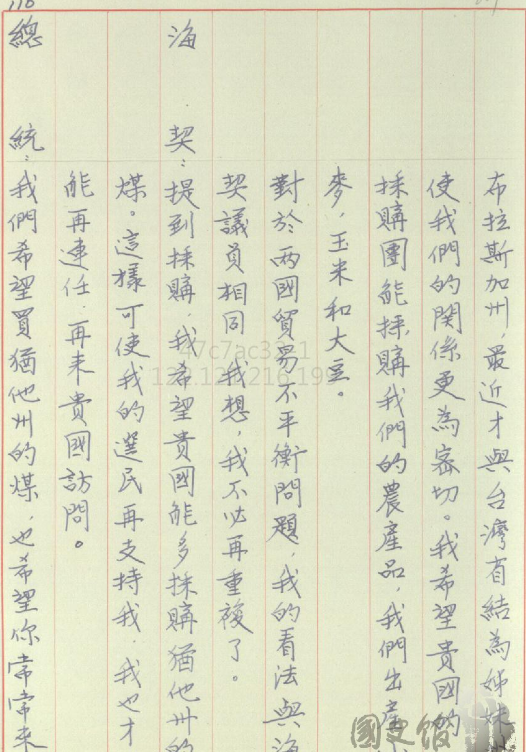 布拉斯加州，最近才與台灣省結為姊妹
使我們的關係更為密切。我希望貴國的
採購團能採購我們的農產品，我們出產
麥，玉米和大豆。
對於兩國貿易不平衡問題，我的看法與海
契議員相同，我想，我不必再重複了。
海契：提到採購，我希望貴國能多採購猶他州的
煤。這樣可使我的選民再支持我，我也才
能再連任，再來貴國訪問。
總統：我們希望買猶他州的煤，也希望你常常來
47c7ac3
國史館